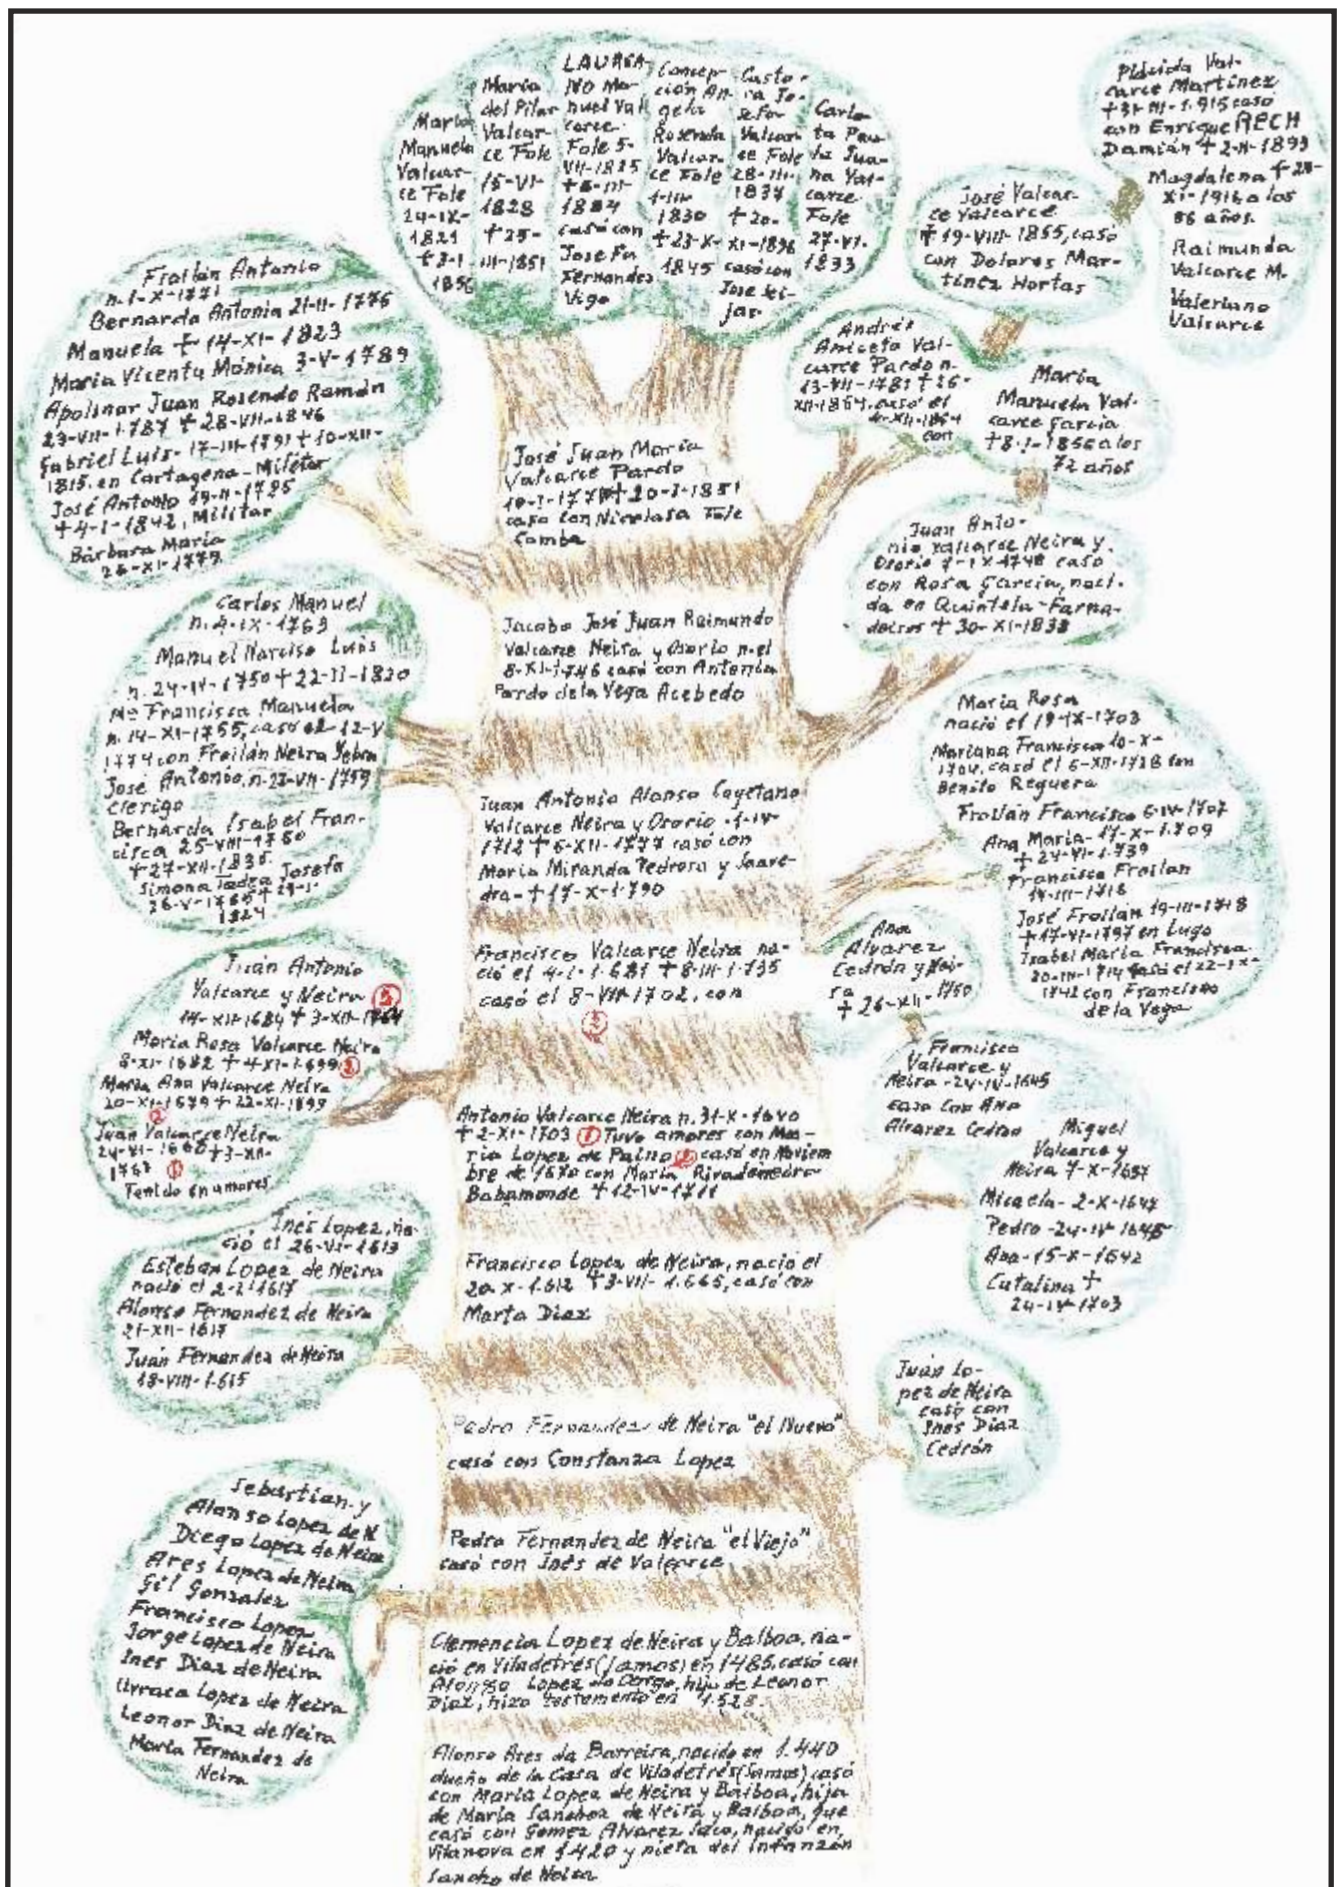 Maria
Manuela
Valcar-
ce Fole
24-IX-
1821
+ 3-1
1856
Maria
del Pilar
Valcar-
ce Fole
15-VI-
1828
+ 25-
III-1851
LAUREA
NO Ma-
nuel Val
carce
Fole 5-
VII-1825
+ 6-III-
1884
casó con
Josefa
Fernandez
Vigo
Concep-
ción An-
gela
Rosenda
Valcar-
ce Fole
1-III-
1830
+ 23-X-
1845
Casto-
ra Jo-
sefa
Valcar-
ce Fole
28-III-
1837
+ 20-
XI-1896
casó con
Jose Sei-
jas
Carlo-
ta Pau-
la Jua-
na Val-
carce
Fole
27-VI-
1833
Plácida Val-
carce Martinez
+ 31-III-1.915 casó
con Enrique RECH
Damián + 2-II-1899
Magdalena + 28-
XI-1916 a los
86 años.
Raimunda
Valcarce M.
Valeriano
Valcarce
José Valcar-
ce Valcarce
+ 19-VIII-1855, casó
con Dolores Mar-
tinez Hortas
Andrés
Aniceto Val-
carce Pardo n.
13-VII-1781 + 26-
XII-1864, casó el
con
Maria
Manuela Val-
carce Garcia
+ 8-1-1856 a los
72 años
Juan Anto-
nio Valcarce Neira y
Osorio 7-IX-1748 casó
con Rosa Garcia, naci-
da en Quintela-Farna-
deiros + 30-XI-1833
Froilán Antonio
n. 1-X-1771
Bernarda Antonia 21-II-1776
Manuela + 14-XI-1823
Maria Vicenta Mónica 3-V-1789
Apolinar Juan Rosendo Ramón
23-VII-1.787 + 28-VII-1846
Gabriel Luis-17-III-1791 + 10-XII-
1815. en Cartagena-Militar
José Antonio 19-II-1785
+ 4-1-1842, Militar
Bárbara Maria
26-XI-1779
José Juan Maria
Valcarce Pardo
+ 20-1-1851
caso con Nicolasa Fole
Comba
Jacobo José Juan Raimundo
Valcarce Neira y Osorio n. el
8-XI-1746 casó con Antonia
Pardo de la Vega Acebedo
Carlos Manuel
n. 4-IX-1763
Manuel Narciso Luis
n. 24-IV-1750 + 22-II-1820
Mª Francisca Manuela
n. 14-XI-1755, casó el 12-V
1774 con Froilán Neira Yebra
José Antonio, n. 23-VII-1759
clerigo
Bernarda Isabel Fran-
cisca 25-VIII-1760
+ 27-XII-1835.
Simona Tadea Josefa
26-V-1765 + 29-1-
1824
Maria Rosa
nació el 19-IX-1703
Mariana Francisca 10-X-
1704. casó el 6-XII-1728 con
Benito Reguera
Froilán Francisco 6-IV-1707
Ana Maria-17-X-1.709
+ 24-VI-1.739
Francisco Froilan
14-III-1716
José Froilán 19-III-1718
+ 17-VI-1797 en Lugo
Isabel Maria Francisca
20-III-1714 casó el 22-IX-
1742 con Francisco
de la Vega
Juan Antonio Alonso Cayetano
Valcarce Neira y Osorio-1-IV-
1712 + 6-XII-1777 casó con
Maria Miranda Pedrosa y Saave-
dra-+ 17-X-1.790
Francisco Valcarce Neira na-
ció el 4-1-1.681 + 8-III-1.735
casó el 8-VIII-1702, con
Ana
Alvarez
Cedrón y Nei-
ra
+ 26-XII-1750
Juan Antonio
Valcarce y Neira 5
14-XII-1684 + 3-XII-1764
Maria Rosa Valcarce Neira
8-XI-1682 + 4-XI-1.699
Maria Ana Valcarce Neira
20-XI-1679 + 22-XI-1899
2
Juan Valcarce Neira
24-VI-1660 + 3-XII-
1767 1
Tenido en amores
Antonio Valcarce Neira n. 31-X-1640
+ 2-XI-1703 1 Tuvo amores con Ma-
ria Lopez de Palno 2 casó en Noviem-
bre de 1670 con Maria Rivadeneira
Bahamonde + 12-IV-1711
Francisco
Valcarce y
Neira-24-IV-1645
caso con Ana
Alvarez Cedron
Miguel
Valcarce y
Neira 7-X-1637
Micaela-2-X-1647
Pedro-24-IV-1645
Ana-15-X-1642
Catalina +
24-IV-1703
Inés Lopez, na-
ció el 26-VI-1613
Esteban Lopez de Neira
nació el 2-2-1617
Alonso Fernandez de Neira
21-XII-1617
Juan Fernandez de Neira
18-VIII-1.615
Francisco Lopez de Neira, nació el
20-X-1.612 + 3-VII-1.665, casó con
Marta Diaz
Juan Lo-
pez de Neira
casó con
Ines Diaz
Cedrón
Pedro Fernandez de Neira "el Nuevo"
casó con Constanza Lopez
Pedro Fernandez de Neira "el Viejo"
casó con Inés de Valcarce
Sebastian y
Alonso Lopez de N
Diego Lopez de Neira
Ares Lopez de Neira
Gil Gonzalez
Francisco Lopez
Jorge Lopez de Neira
Ines Diaz de Neira
Urraca Lopez de Neira
Leonor Diaz de Neira
Maria Fernandez de
Neira
Clemencia Lopez de Neira y Balboa, na-
ció en Viladetrés (Samos) en 1485, casó con
Alonso Lopez do Cergo, hijo de Leonor
Diaz, hizo testamento en 1.528.
Alonso Ares da Barreira, nacido en 1.440
dueño de la Casa de Viladetrés (Samos) casó
con Maria Lopez de Neira y Balboa, hija
de Maria Sanchez de Neira y Balboa, que
casó con Gomez Alvarez Saco, nacido en
Vilanova en 1420 y nieta del infanzón
Sancho de Neira